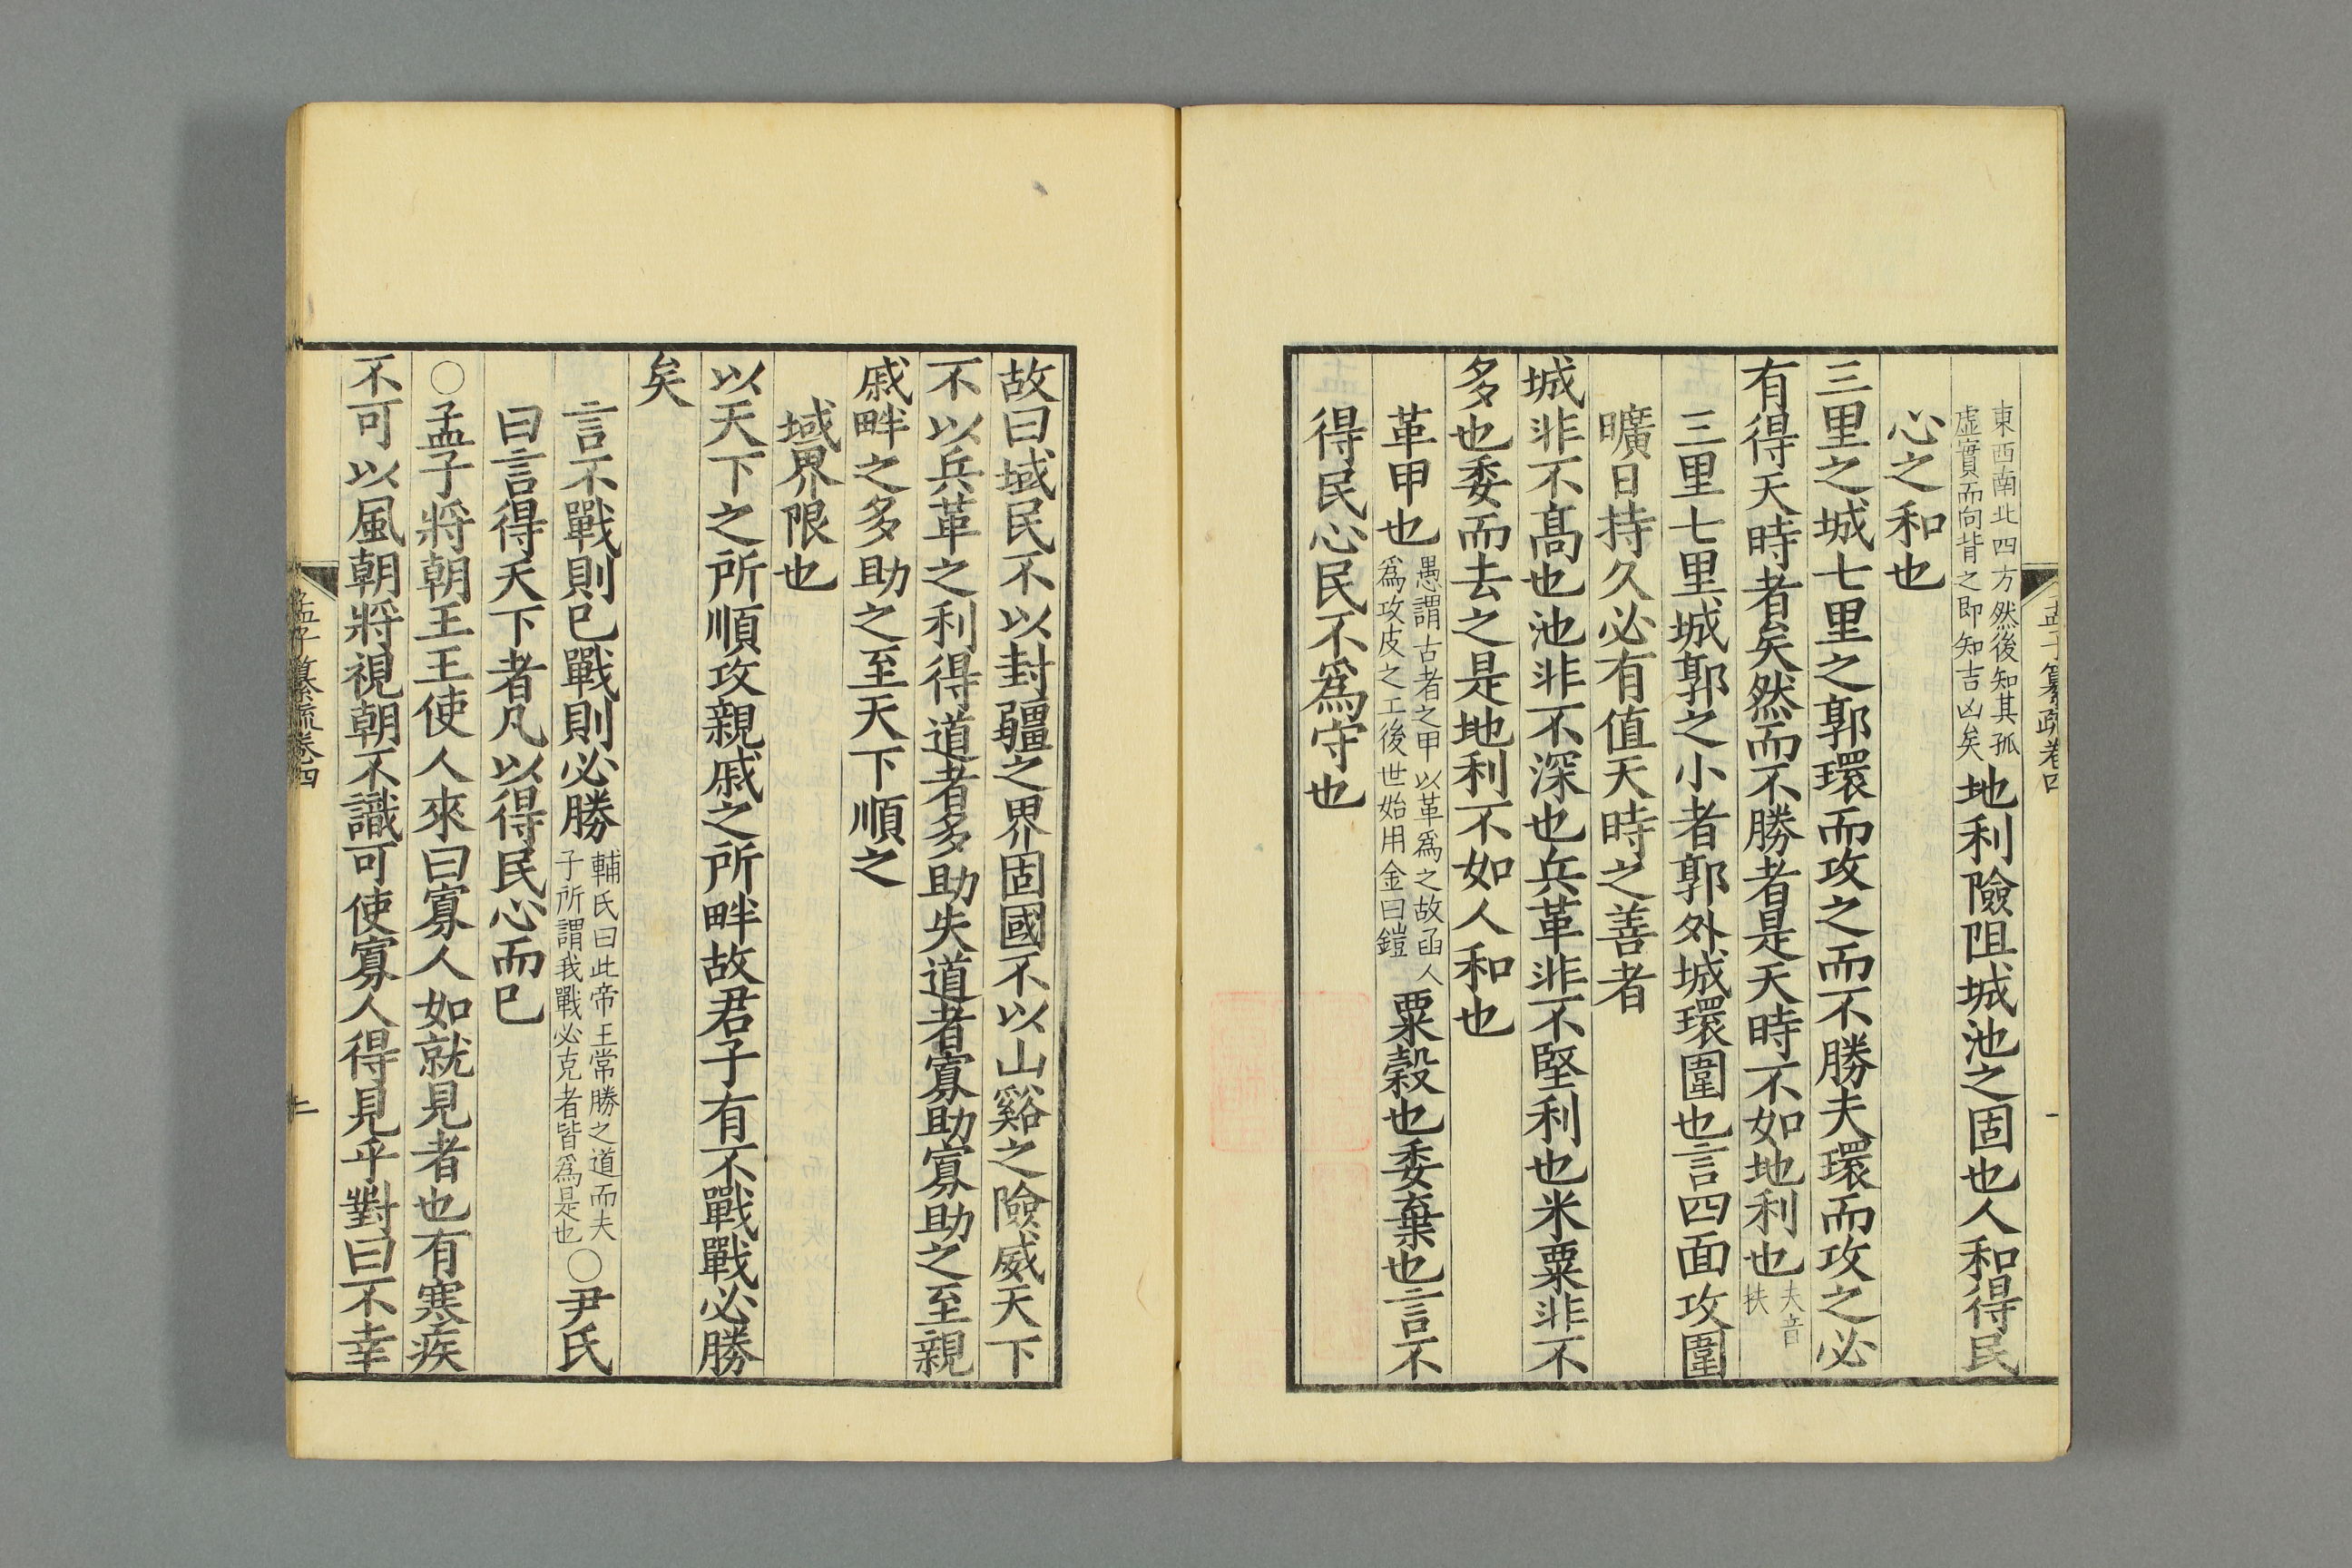 孟子纂疏卷四
一
東西南北四方然後知其孤
虛實而向背之即知吉凶矣
地利險阻城池之固也人和得民
心之和也
三里之城七里之郭環而攻之而不勝夫環而攻之必
有得天時者矣然而不勝者是天時不如地利也
夫音
扶
三里七里城郭之小者郭外城環圍也言四面攻圍
曠日持久必有值天時之善者
城非不高也池非不深也兵革非不堅利也米粟非不
多也委而去之是地利不如人和也
革甲也
愚謂古者之甲以革爲之故函人
爲攻皮之工後世始用金曰鎧
粟穀也委棄也言不
得民心民不爲守也
故曰域民不以封疆之界固國不以山谿之險威天下
不以兵革之利得道者多助失道者寡助寡助之至親
戚畔之多助之至天下順之
域界限也
以天下之所順攻親戚之所畔故君子有不戰戰必勝
矣
言不戰則已戰則必勝
輔氏曰此帝王常勝之道而夫
子所謂我戰必克者皆爲是也
○尹氏
曰言得天下者凡以得民心而已
○孟子將朝王王使人來曰寡人如就見者也有寒疾
不可以風朝將視朝不識可使寡人得見乎對曰不幸
孟子纂疏卷四
二